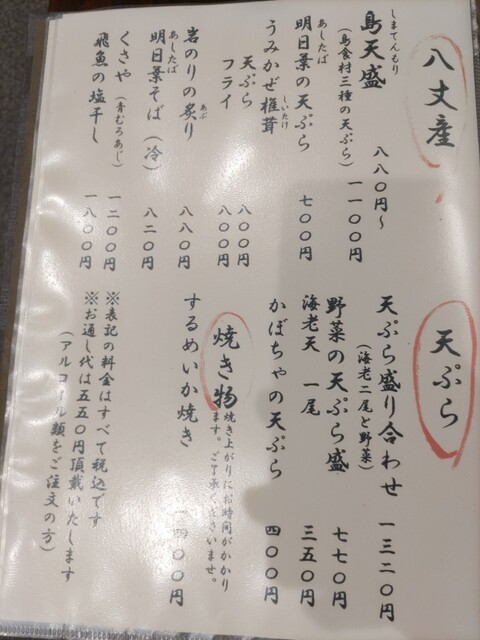 八丈産
しまてんもり
島天盛
八八〇円〜
(島食材三種の天ぷら)
一一〇〇円
あしたば
明日葉の天ぷら
七〇〇円
うみかぜ椎茸
しいたけ
天ぷら
八〇〇円
フライ
八〇〇円
岩のりの炙り
あぶ
八八〇円
あしたば
明日葉そば(冷)
八二〇円
くさや(青むろあじ)
一二〇〇円
飛魚の塩干し
一八〇〇円
天ぷら
天ぷら盛り合わせ
(海老二尾と野菜)
一三二〇円
野菜の天ぷら盛
七七〇円
海老天 一尾
三五〇円
かぼちゃの天ぷら
四〇〇円
焼き物
焼き上がりにお時間がかかり
ます。ご了承くださいませ。
するめいか焼き
一四〇〇円
※表記の料金はすべて税込です
※お通し代は五五〇円頂戴いたします
(アルコール類をご注文の方)